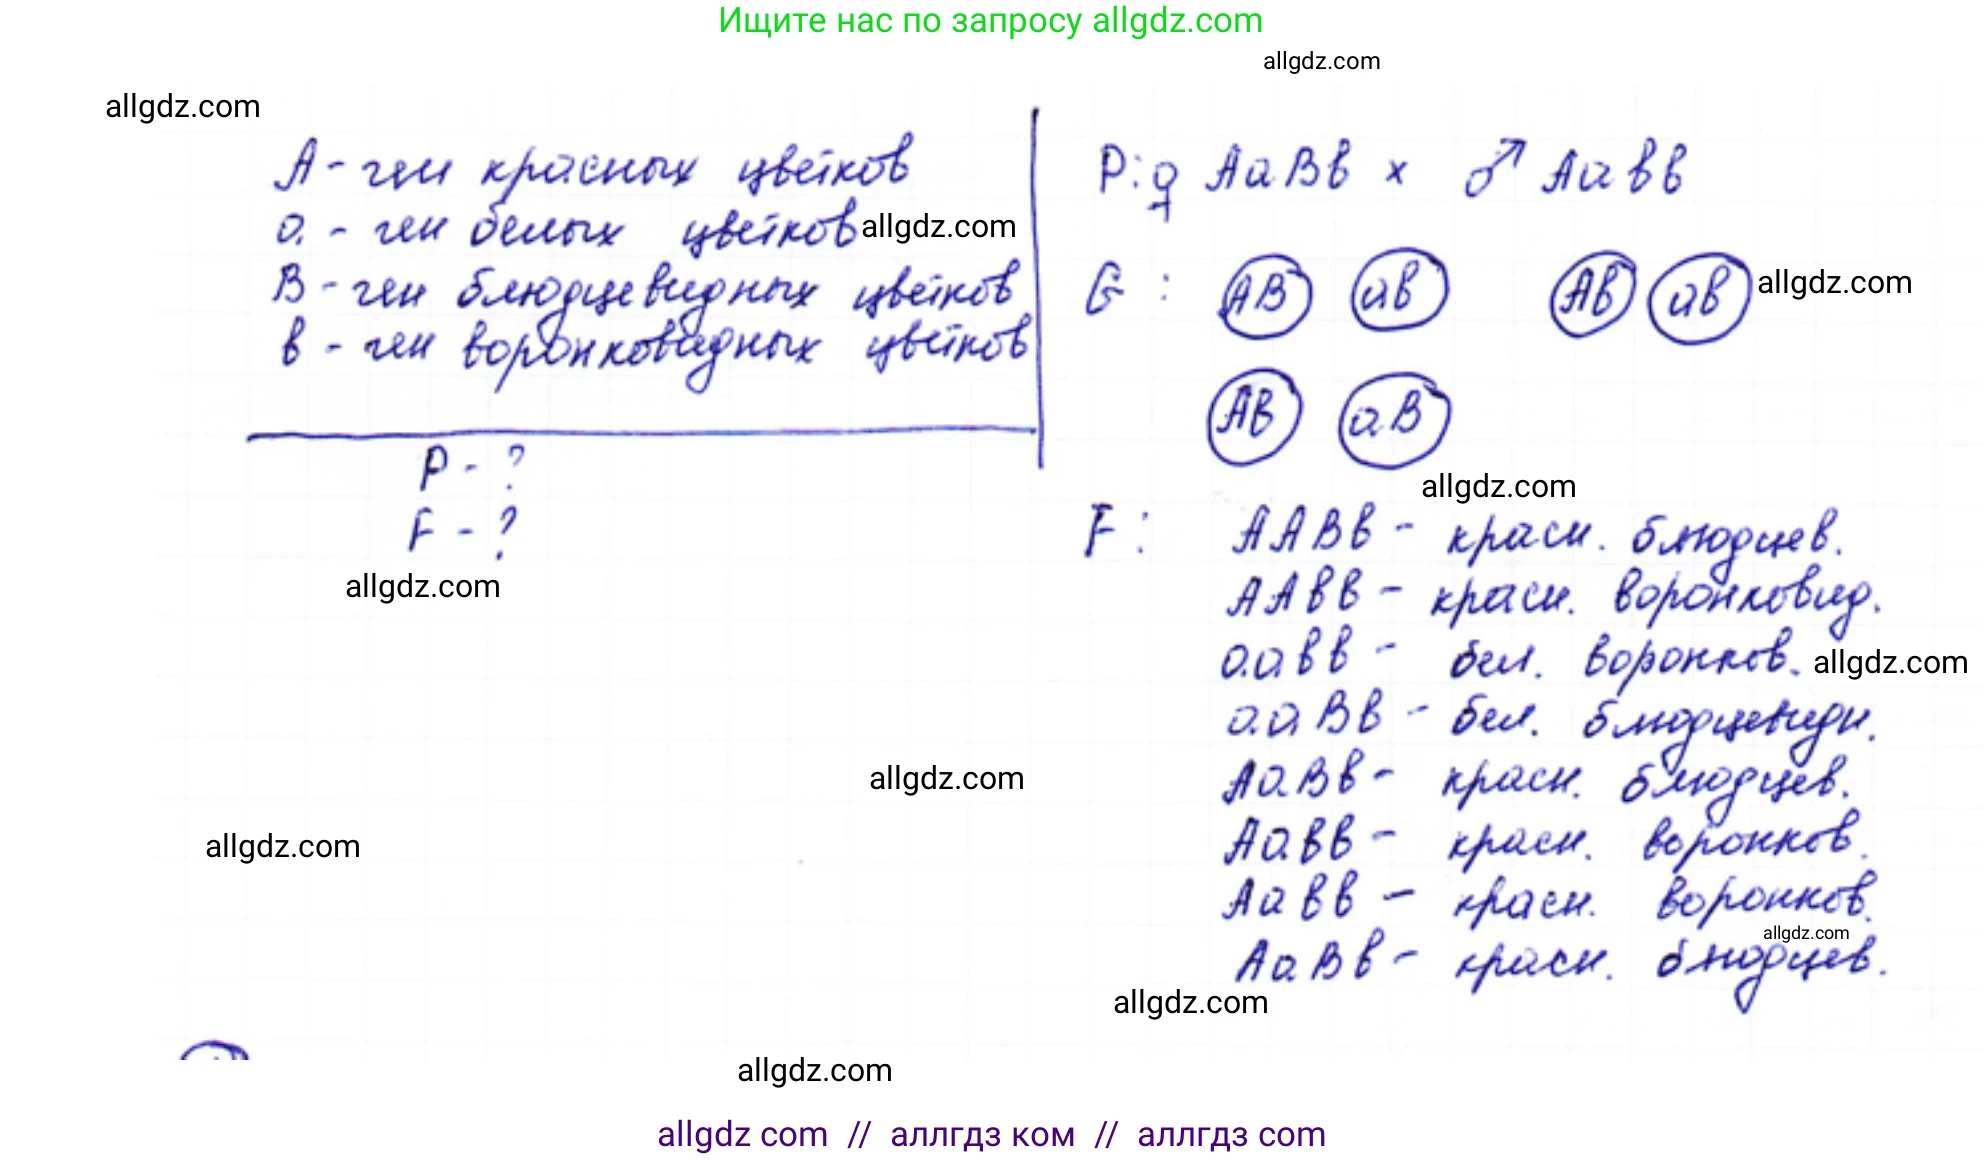 Ищите нас по запросу allgdz.com
allgdz.com
allgdz.com
А - ген красных цветков
а - ген белых цветков
allgdz.com
В - ген блюдцевидных цветков
в - ген воронковидных цветков
Р - ?
F - ?
allgdz.com
Р: ♀ АаВв × ♂ Аавв
G : АВ ав Ав ав
allgdz.com
Ав аВ
allgdz.com
F : ААВв - красн. блюдцев.
ААвв - красн. воронковид.
аавв - бел. воронков.
allgdz.com
ааВв - бел. блюдцевидн.
АаВв - красн. блюдцев.
allgdz.com
Аавв - красн. воронков.
allgdz.com
Аавв - красн. воронков.
allgdz.com
АаВв - красн. блюдцев.
allgdz.com
allgdz.com
allgdz com // аллгдз ком // аллгдз com